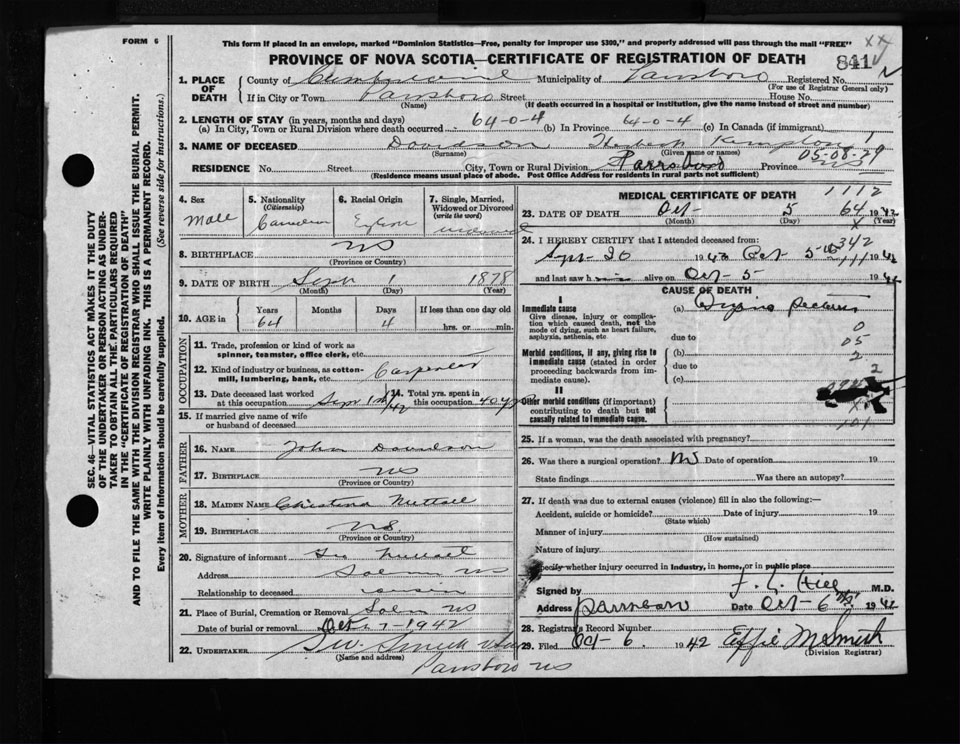 FORM 6
This form if placed in an envelope, marked "Dominion Statistics—Free, penalty for improper use $300," and properly addressed will pass through the mail "FREE"
PROVINCE OF NOVA SCOTIA—CERTIFICATE OF REGISTRATION OF DEATH
841
1. PLACE OF DEATH
County of Cumberland Municipality of Parrsboro Registered No.
(For use of Registrar General only)
If in City or Town Parrsboro Street House No.
(Name) (If death occurred in a hospital or institution, give the name instead of street and number)
2. LENGTH OF STAY (in years, months and days)
(a) In City, Town or Rural Division where death occurred 64-0-4 (b) In Province 64-0-4 (c) In Canada (if immigrant)
3. NAME OF DECEASED Davidson Herbert
(Surname) (Given name or names)
RESIDENCE No. Street City, Town or Rural Division Parrsboro Province 05-08-29
(Residence means usual place of abode. Post Office Address for residents in rural parts not sufficient)
4. Sex
Male
5. Nationality (Citizenship)
Canadian
6. Racial Origin
English
7. Single, Married, Widowed or Divorced (write the word)
8. BIRTHPLACE NS
(Province or Country)
9. DATE OF BIRTH Sept 1 1878
(Month) (Day) (Year)
10. AGE in Years Months Days If less than one day old
64 4 hrs. or min.
OCCUPATION
11. Trade, profession or kind of work as spinner, teamster, office clerk, etc.
12. Kind of industry or business, as cotton-mill, lumbering, bank, etc. Carpenter
13. Date deceased last worked at this occupation Sept 1st/42
14. Total yrs. spent in this occupation 40 yrs
15. If married give name of wife or husband of deceased
FATHER
16. NAME John Davidson
17. BIRTHPLACE NS
(Province or Country)
MOTHER
18. MAIDEN NAME Christina Nuttall
19. BIRTHPLACE NS
(Province or Country)
20. Signature of informant Geo Nuttall
Address Salem NS
Relationship to deceased cousin
21. Place of Burial, Cremation or Removal Salem NS
Date of burial or removal Oct 7 1942
22. UNDERTAKER
(Name and address)
Parrsboro NS
MEDICAL CERTIFICATE OF DEATH
1112
23. DATE OF DEATH Oct 5 64 1942
(Month) (Day) (Year)
24. I HEREBY CERTIFY that I attended deceased from:
Sept 20 1942 Oct 5 1942
342
and last saw him alive on Oct 5 1942
CAUSE OF DEATH
I
Immediate cause
Give disease, injury or complication which caused death, not the mode of dying, such as heart failure, asphyxia, asthenia, etc
(a) Angina Pectoris
due to
Morbid conditions, if any, giving rise to immediate cause (stated in order proceeding backwards from immediate cause).
(b)
due to
(c)
0
05
2
2
II
Other morbid conditions (if important) contributing to death but not causally related to immediate cause.
101
25. If a woman, was the death associated with pregnancy?
26. Was there a surgical operation? No Date of operation 19
State findings Was there an autopsy?
27. If death was due to external causes (violence) fill in also the following:—
Accident, suicide or homicide? Date of injury 19
(State which)
Manner of injury
(How sustained)
Nature of injury
Specify whether injury occurred in Industry, in home, or in public place
Signed by F. L. Hill M.D.
Address Parrsboro Date Oct 6 1942
28. Registrar's Record Number
29. Filed Oct- 6 1942 Effie M. Smith
(Division Registrar)
SEC. 46—VITAL STATISTICS ACT MAKES IT THE DUTY
OF THE UNDERTAKER OR PERSON ACTING AS UNDER-
TAKER TO OBTAIN ALL THE PARTICULARS REQUIRED
IN THE "CERTIFICATE OF REGISTRATION OF DEATH"
AND TO FILE THE SAME WITH THE DIVISION REGISTRAR WHO SHALL ISSUE THE BURIAL PERMIT.
WRITE PLAINLY WITH UNFADING INK. THIS IS A PERMANENT RECORD.
Every item of Information should be carefully supplied. (See reverse side for Instructions.)